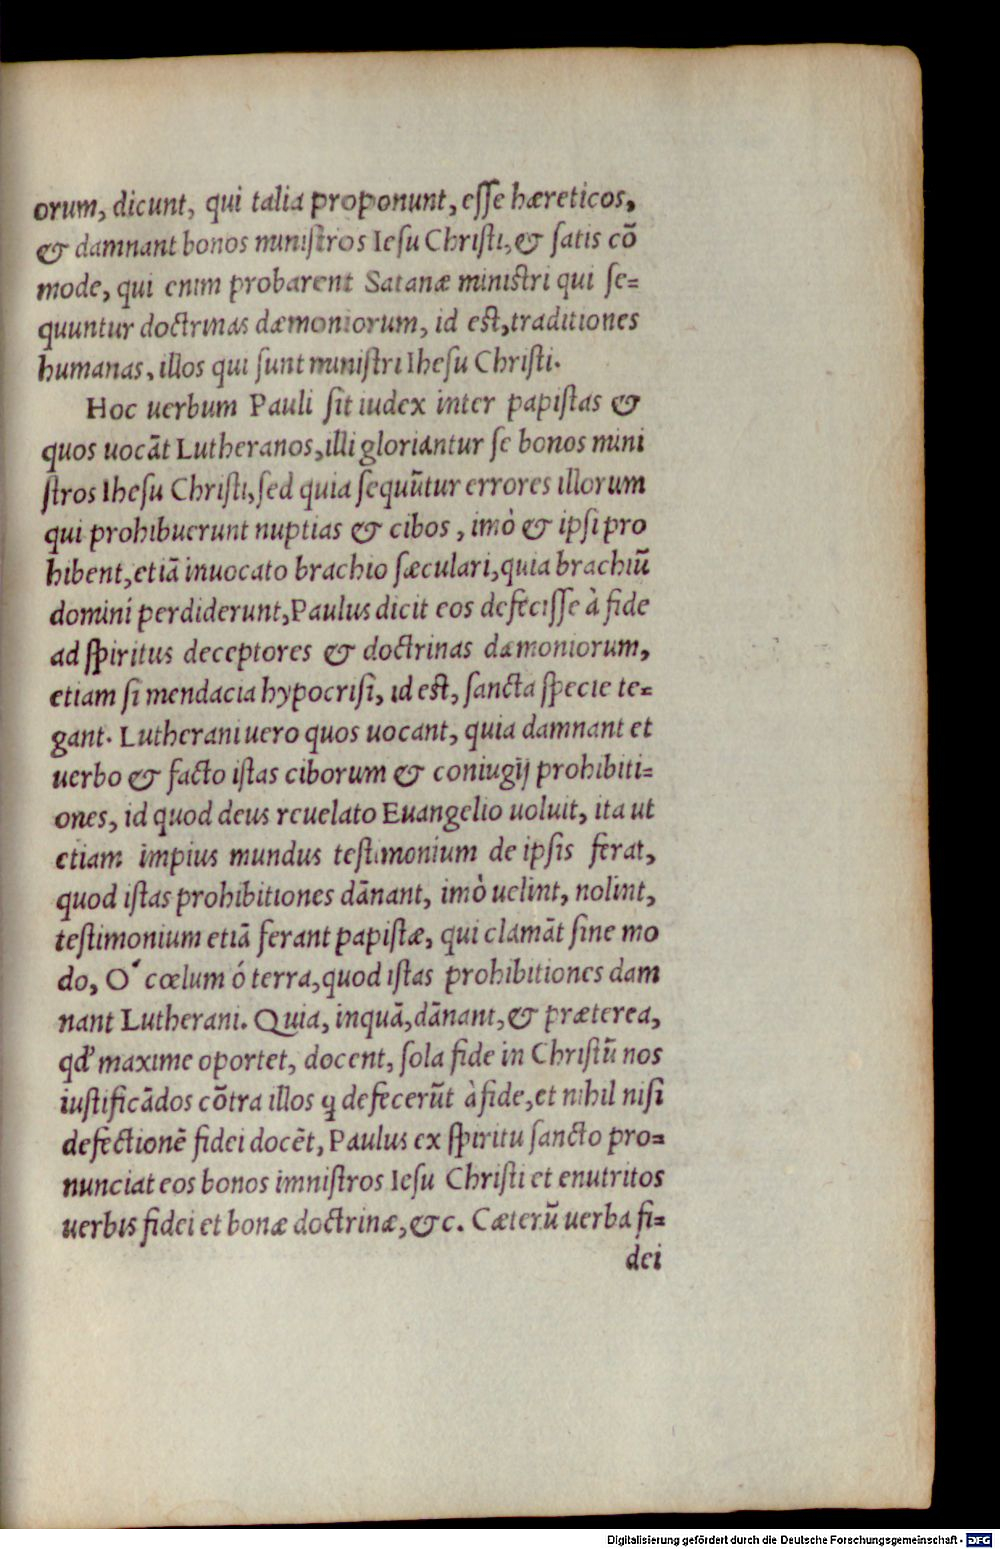 orum, dicunt, qui talia proponunt, esse hæreticos,
& damnant bonos ministros Iesu Christi, & satis cō
mode, qui enim probarent Satanæ ministri qui se=
quuntur doctrinas dæmoniorum, id est, traditiones
humanas, illos qui sunt ministri Ihesu Christi.
Hoc uerbum Pauli sit iudex inter papistas &
quos uocāt Lutheranos, illi gloriantur se bonos mini
stros Ihesu Christi, sed quia sequūtur errores illorum
qui prohibuerunt nuptias & cibos, imò & ipsi pro
hibent, etiā inuocato brachio sæculari, quia brachiū
domini perdiderunt, Paulus dicit eos defecisse à fide
ad spiritus deceptores & doctrinas dæmoniorum,
etiam si mendacia hypocrisi, id est, sancta specie te=
gant. Lutherani uero quos uocant, quia damnant et
uerbo & facto istas ciborum & coniugij prohibiti=
ones, id quod deus reuelato Euangelio uoluit, ita ut
etiam impius mundus testimonium de ipsis ferat,
quod istas prohibitiones dānant, imò uelint, nolint,
testimonium etiā ferant papistæ, qui clamāt sine mo
do, O' cœlum ó terra, quod istas prohibitiones dam
nant Lutherani. Quia, inquā, dānant, & præterea,
qd' maxime oportet, docent, sola fide in Christū nos
iustificādos cōtra illos ꝗ defecerūt à fide, et nihil nisi
defectionē fidei docēt, Paulus ex spiritu sancto pro=
nunciat eos bonos imnistros Iesu Christi et enutritos
uerbis fidei et bonæ doctrinæ, &c. Cæterū uerba fi=
dei
Digitalisierung gefördert durch die Deutsche Forschungsgemeinschaft - DFG